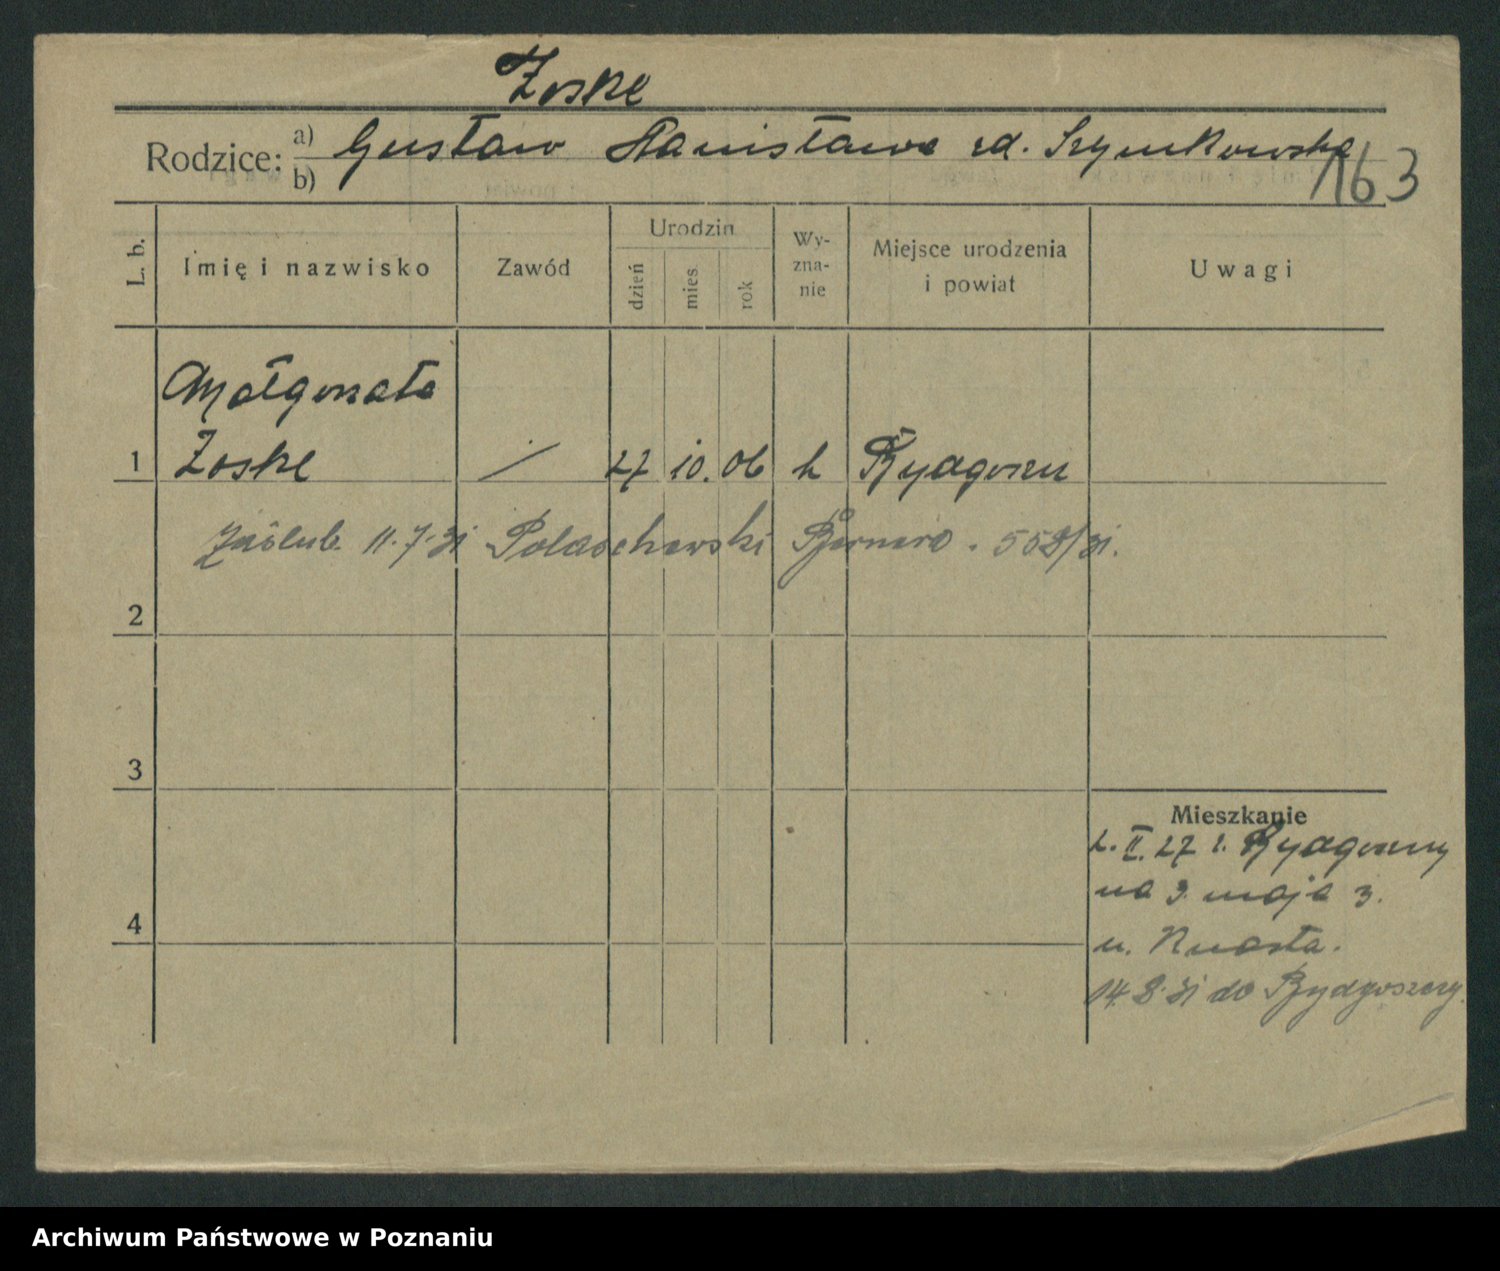 Zoske
Rodzice: a) Gustaw Stanisława zd. Szymkowska
b)
163
L. b. Imię i nazwisko Zawód Urodzin dzień mies. rok Wy-zna-nie Miejsce urodzenia i powiat Uwagi
Małgorzata
1 Zoske / 27 10. 06 k Bydgoszcz
Zaślub. 11.7.31 Polaschewski Bernard. 558/31.
2
3
Mieszkanie
2. II. 27 z Bydgoszczy
na 3 maja 3.
4
14.8.31 do Bydgoszczy.
Archiwum Państwowe w Poznaniu